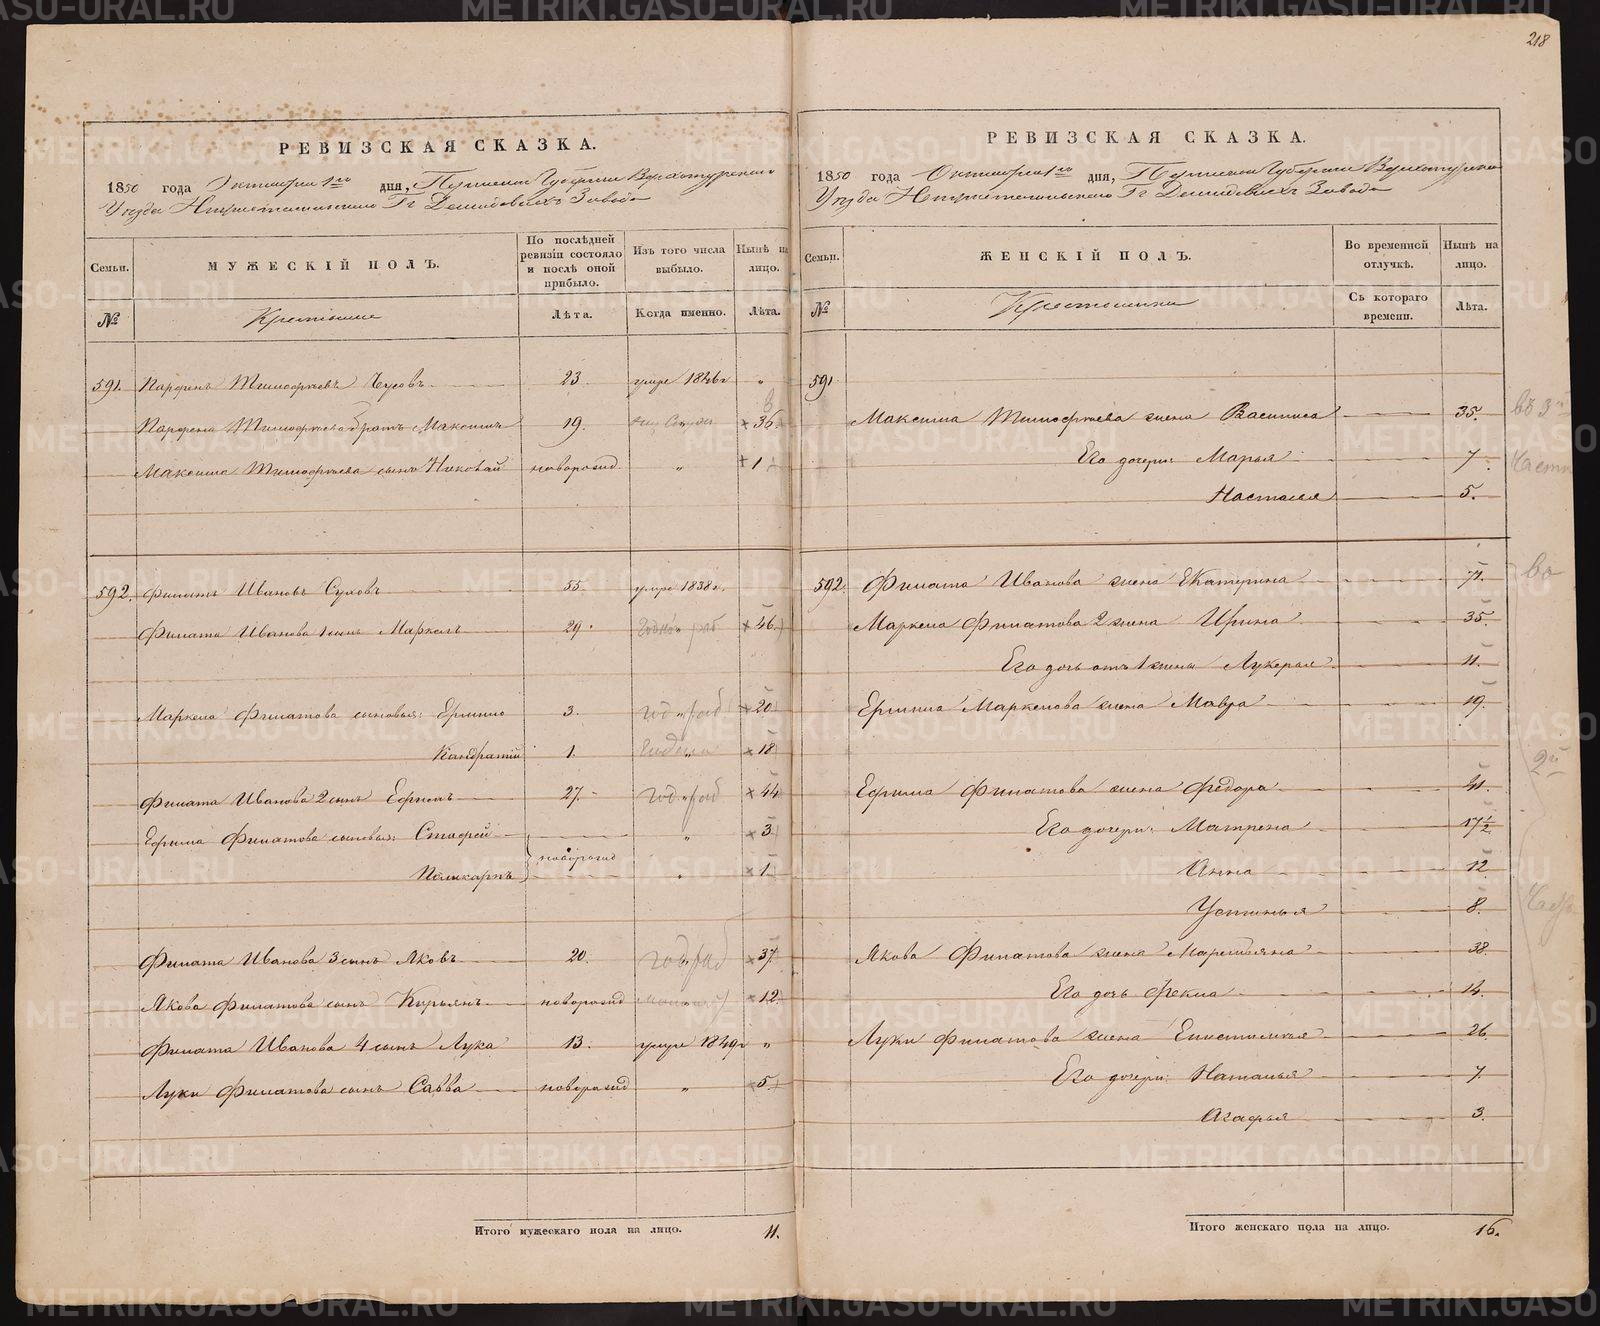 218
РЕВИЗСКАЯ СКАЗКА.
1850 года Октября 1го дня, Пермской Губернии Верхотурского
Уезда Нижнетагильского Гг Демидовыхъ Завода
Семьи.
МУЖЕСКІЙ ПОЛЪ.
По послѣдней ревизіи состояло и послѣ оной прибыло.
Изъ того числа выбыло.
Нынѣ на лицо.
№
Крестьяне
Лѣта.
Когда именно.
Лѣта.
591. Парфенъ Тимофѣевъ 23. умре 1846г "
Парфена Тимофѣева братъ Максимъ 19. 36.
Максима Тимофѣева сынъ Николай новорожд " 1
592. Филатъ Ивановъ Суховъ 55. умре 1838г.
Филата Иванова 1 сынъ Маркелъ 29. 46.
Маркела Филатова сыновья: Ермило 3. 20
Кандратій 1. 18
Филата Иванова 2 сынъ Ефимъ 27. 44
Ефима Филатова сыновья: Стафей " 3
новорожд
Поликарпъ " 1
Филата Иванова 3 сынъ Яковъ 20. 37
Якова Филатова сынъ Кирьянъ новорожд 12
Филата Иванова 4 сынъ Лука 13. умре 1849г "
Луки Филатова сынъ Савва новорожд " 5
Итого мужескаго пола на лицо. 11.
РЕВИЗСКАЯ СКАЗКА.
1850 года Октября 1го дня, Пермской Губернии Верхотурского
Уезда Нижнетагильского Гг Демидовыхъ Завода
Семьи.
ЖЕНСКІЙ ПОЛЪ.
Во временной отлучкѣ.
Нынѣ на лицо.
№
Крестьянки
Съ котораго времени.
Лѣта.
591
Максима Тимофѣева жена Василиса 35.
Его дочери: Марья 7.
Настасья 5.
592. Филата Иванова жена Екатерина 71.
Маркела Филатова 2 жена Ирина 35.
Его дочь отъ 1 жены Лукерья 11.
Ермила Маркелова жена Мавра 19.
Ефима Филатова жена Федора 41.
Его дочери: Матрена 17 1/2
Анна 12
Устинья 8.
Якова Филатова жена Маремьяна 38.
Его дочь Фекла 14.
Луки Филатова жена Епистимья 26.
Его дочери: Наталья 7.
Агафья 3.
Итого женскаго пола на лицо. 16.
METRIKI.GASO-URAL.RU